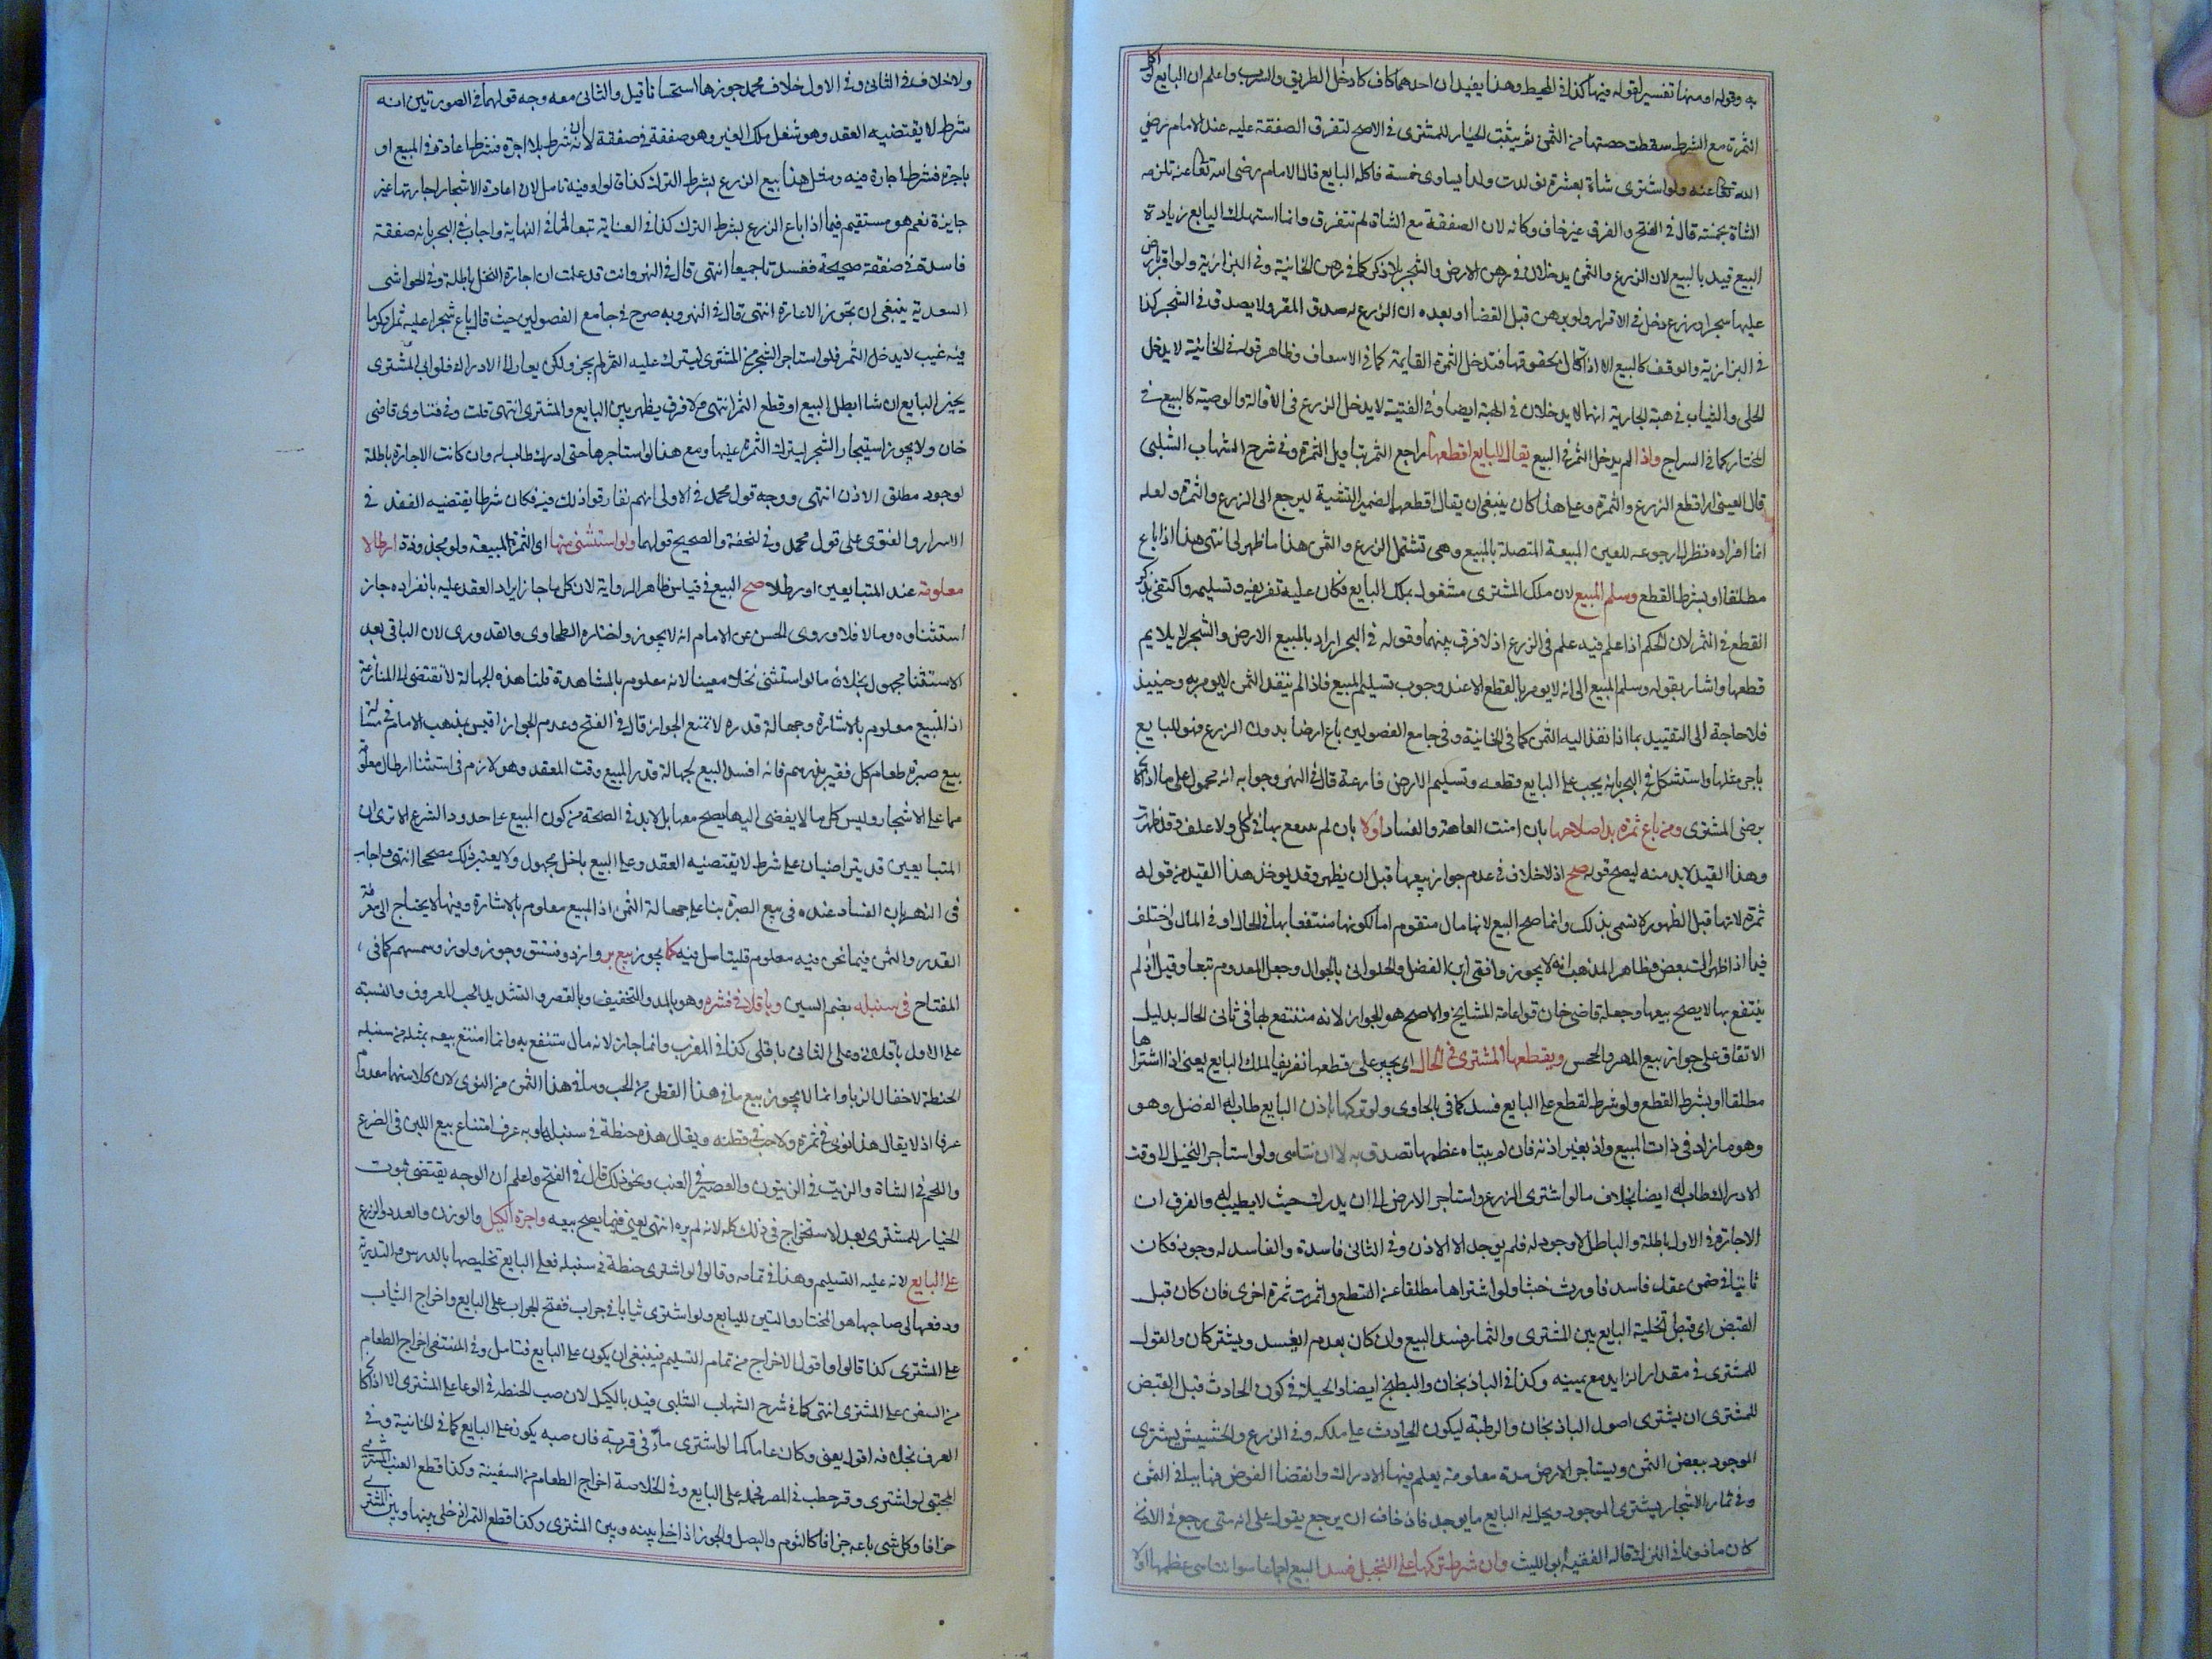 به وقوله او منها تفسير لقوله فيها كذا في المحيط وهذا يفيد ان احدهما كاف كما دخل الطريق والشرب واعلم ان البايع لو اكل
الثمرة مع الشرط سقطت حصتها من الثمن ثم يثبت الخيار للمشترى في الاصح لتفرق الصفقة عليه عند الامام رضي
الله تعالى عنه ولو اشترى شاة بعشرة فولدت ولدا يساوى خمسة فاكله البايع قال الامام رضى الله تعالى عنه تلزمه
الشاة بخمسة قال في الفتح والفرق غير خاف وكانه لان الصفقة مع الشاة لم تتفرق وانما استهلك البايع زيادة
البيع قيد بالبيع لان الزرع والثمن يدخلان في رهن الارض والشجر بلا ذكر كما في رهن الخانية وفي البزازية ولو اقر بارض
عليها شجر او زرع دخل في الاقرار ولو برهن قبل القضا او بعده ان الزرع له صدق المقر ولا يصدق في الشجر كذا
في البزازية والوقف كالبيع الا اذا قال بحقوقها فتدخل الثمرة القايمة كما في الاسعاف وظاهر قوله في الخانية لا يدخل
الحلى والثياب في هبة الجارية انهما لا يدخلان في الهبة ايضا وفي القنية لا يدخل الزرع في الاقالة والوصية كالبيع في
المختار كما في السراج واذا لم يدخل الثمر في البيع يقال للبايع اقطعها راجع الثمر بتاويل الثمرة وفي شرح الشهاب الشلبى
قال العينى اى اقطع الزرع والثمرة وعلى هذا كان ينبغى ان يقال اقطعهما بضمير التثنية ليرجع الى الزرع والثمرة ولعله
انما افرده نظرا لرجوعه للعين المبيعة المتصلة بالمبيع وهى تشتمل الزرع والثمن هذا ما ظهر لى انتهى هذا اذا باع
مطلقا او بشرط القطع وسلم المبيع لان ملك المشترى مشغول بملك البايع فكان عليه تفريغه وتسليمه واكتفى بذكر
القطع في الثمر لان الحكم اذا علم فيه علم في الزرع اذ لا فرق بينهما وقوله في البحر اراد بالمبيع الارض والشجر لا يلايم
قطعها واشار بقوله وسلم المبيع الى انه لا يومر بالقطع الا عند وجوب تسليم المبيع فاذا لم ينقد الثمن لا يومر به وحينيذ
فلا حاجة الى التقييد بما اذا نقد اليه الثمن كما في الخانية وفي جامع الفصولين باع ارضا بدون الزرع فهو للبايع
باجر مثلها واستشكل في البحر بانه يجب على البايع قطعه وتسليم الارض فارغة قال في النهر وجوابه انه محمول على ما اذا كان
برضى المشترى ومن باع ثمرة بدا صلاحها بان امنت العاهة والفساد اولا بان لم ينتفع بها في اكل ولا علف وقد ظهرت
وهذا القيد لا بد منه ليصح قوله صح اذ لا خلاف في عدم جواز بيعها قبل ان يظهر وقد يوخذ هذا القيد من قوله
ثمرة لانها قبل الظهور لا تسمى بذلك وانما صح البيع لانها مال متقوم اما لكونها منتفعا بها في الحال او في المال واختلف
فيما اذا ظهر البعض فظاهر المذهب انه لا يجوز وافتى ابن الفضل والحلوانى بالجواز وجعل المعدوم تبعا وقيل ان لم
ينتفع بها لا يصح بيعها وجعله قاضى خان قول عامة المشايخ والاصح هو الجواز لانه منتفع بها في ثانى الحال بدليل
الاتفاق على جواز بيع المهر والجحش ويقطعها المشترى في الحال اى يجبر على قطعها تفريغا لملك البايع يعنى اذا اشتراها
مطلقا او بشرط القطع ولو شرط القطع على البايع فسد كما في الحاوى ولو تركها باذن البايع طاب له الفضل وهو
وهو ما زاد في ذات المبيع واذ بغير اذنه فان لم يتناه عظمها تصدق به لا ان تناهى ولو استاجر النخيل لا وقت
الادراك طاب له ايضا بخلاف ما لو اشترى الزرع واستاجر الارض الى ان يدرك حيث لا يطيب له والفرق ان
الاجارة في الاول باطلة والباطل لا وجود له فلم يوجد الا الاذن وفي الثانى فاسدة والفاسد له وجود فكان
ثابتا في ضمن عقد فاسد فاورث خبثا ولو اشتراها مطلقا عن القطع واثمرت ثمرة اخرى فان كان قبل
القبض اى قبل تخلية البايع بين المشترى والثمار فسد البيع وان كان بعده لم يفسد ويشتركان والقول
للمشترى في مقدار الزايد مع يمينه وكذا في الباذنجان والبطيخ ايضا والحيلة في كون الحادث قبل القبض
للمشترى ان يشترى اصول الباذنجان والرطبة ليكون الحادث على ملكه وفي الزرع والحشيش يشترى
الموجود ببعض الثمن ويستاجر الارض مدة معلومة يعلم فيها الادراك وانقضا الغرض فيها بباقى الثمن
وفي ثمار الاشجار يشترى الموجود ويحل له البايع ما يوجد فان خاف ان يرجع يقول على انه متى رجع في الاذن
كان ماذونا في الترك قاله الفقيه ابو الليث وان شرط تركها على النخيل فسد البيع اجماعا سوا تناهى عظمها اولا
ولا خلاف في الثانى وفي الاول خلاف محمد جوزها استحسانا قيل والثانى معه وجه قولهما في الصورتين انه
شرط لا يقتضيه العقد وهو شغل ملك الغير وهو صفقة في صفقة لانه ان شرط بلا اجرة فشرط اعادة في المبيع او
باجرة فشرط اجارة فيه ومثل هذا بيع الزرع بشرط الترك كذا قالوا وفيه تامل لان اعادة الاشجار اجارتها غير
جايزة نعم هو مستقيم فيما اذا باع الزرع بشرط الترك كذا في العناية تبعا لما في النهاية واجاب في البحر بانه صفقة
فاسدة في صفقة صحيحة ففسدتا جميعا انتهى قال في النهر وانت قد علمت ان اجارة النخل باطلة وفي الحواشى
السعدية ينبغى ان تجوز الاعارة انتهى قال في النهر وبه صرح في جامع الفصولين حيث قال باع شجرا عليه ثمر وكرما
فيه عنب لا يدخل الثمر فلو استاجر الشجر من المشترى ليترك عليه الثمر لم يجز ولكن يعار الى الادراك فلو ابى المشترى
يخير البايع ان شا ابطل البيع او قطع الثمر انتهى ولا فرق يظهر بين البايع والمشترى انتهى قلت وفي فتاوى قاضى
خان ولا يجوز استيجار الشجر ليترك الثمرة عليها ومع هذا لو استاجرها حتى ادرك طاب له وان كانت الاجارة باطلة
لوجود مطلق الاذن انتهى ووجه قول محمد في الاولى انهم تعارفوا ذلك فيه فكان شرطا يقتضيه العقد في
الاسرار والفتوى على قول محمد وفي التحفة والصحيح قولهما ولو استثنى منها اى الثمرة المبيعة ولو مجذوذة ارطالا
معلومة عند المتبايعين او رطلا صح البيع في قياس ظاهر الرواية لان كل ما جاز ايراد العقد عليه بانفراده جاز
استثناوه وما لا فلا وروى الحسن عن الامام انه لا يجوز واختاره الطحاوى والقدورى لان الباقى بعد
الاستثنا مجهول بخلاف ما لو استثنى نخلا معينا لانه معلوم بالمشاهدة قلنا هذه الجهالة لا تفضى الى المنازعة
اذ المبيع معلوم بالاشارة وجهالة قدره لا تمنع الجواز قال في الفتح وعدم الجواز اقيس بمذهب الامام في مسئلة
بيع صبرة طعام كل قفيز بدرهم فانه افسد البيع لجهالة قدر المبيع وقت العقد وهو لازم في استثنا ارطال معلومة
مما على الاشجار وليس كل ما لا يفضى اليها يصح معها بل لا بد في الصحة من كون المبيع على حدود الشرع الا ترى ان
المتبايعين قد يتراضيان على شرط لا يقتضيه العقد وعلى البيع باجل مجهول ولا يعتبر ذلك مصححا انتهى واجاب
في النهر بان الفساد عنده في بيع الصبرة بنا على جهالة الثمن اذ المبيع معلوم بالاشارة وفيها لا يحتاج الى معرفة
القدر والثمن فيما نحن فيه معلوم فليتامل فيه كما يجوز بيع بر وارز وفستق وجوز ولوز وسمسم كما في
المفتاح في سنبله بضم السين وباقلا في قشره وهو بالمد والتخفيف وبالقصر والتشديد الحب المعروف والنسبة
على الاول باقلانى وعلى الثانى باقلى كذا في المغرب وانما جاز لانه مال ينتفع به وانما امتنع بيعه بمثله من سنبله
الحنطة لاحتمال الربا وانما لا يجوز بيع ما في هذا القطن من الحب وما في هذا الثمن من النوى لان كلا منهما معدوم
عرفا اذ لا يقال هذا نوى في ثمرة ولا حب في قطنه ويقال هذه حنطة في سنبلها وبه عرف امتناع بيع اللبن في الضرع
واللحم في الشاة والزيت في الزيتون والعصير في العنب ونحو ذلك قال في الفتح واعلم ان الوجه يقتضى ثبوت
الخيار للمشترى بعد الاستخراج في ذلك كله لانه لم يره انتهى يعنى فيما يصح بيعه واجرة الكيل والوزن والعدد والذرع
على البايع لانه عليه التسليم وهذا في تمامه وقالوا لو اشترى حنطة في سنبله فعلى البايع تخليصها بالدرس والتذرية
ودفعها الى صاحبها هو المختار والتبن للبايع ولو اشترى ثيابا في جراب ففتح الجراب على البايع واخراج الثياب
على المشترى كذا قالوا واقول الاخراج من تمام التسليم فينبغى ان يكون على البايع فتامل وفي المنتقى اخراج الطعام
من السفن على المشترى انتهى كما في شرح الشهاب الشلبى قيد بالكيل لان صب الحنطة في الوعا على المشترى الا اذا كان
العرف بخلافه اقول يعنى وكان عاما كما لو اشترى ماء في قربة فان صبه يكون على البايع كما في الخانية وفي
المجتبى لو اشترى وقر حطب في المصر فحمله على البايع وفي الخلاصة اخراج الطعام من السفينة وكذا قطع العنب المشترى
جزافا وكل شى باعه جزافا كالثوم والبصل والجوز اذا خلى بينه وبين المشترى وكذا قطع الثمر اذا خلى بينها وبين المشترى